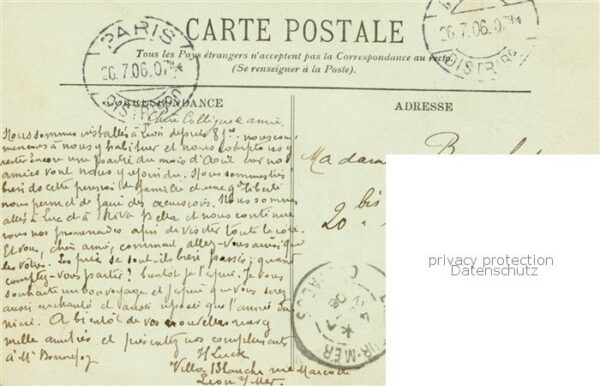 CARTE POSTALE
Tous les Pays étrangers n'acceptent pas la Correspondance au recto
(Se renseigner à la Poste).
PARIS
26.7.06.07
DISTRIB
26.7.06.07
DISTRIB
CORRESPONDANCE
ADRESSE
Chère Collègue & amie,
Nous sommes installés à Lion depuis 8 jrs. nous com
mençons à nous y habituer et nous comptons y
rester encore une partie du mois d'Août car nos
amies vont nous y rejoindre. Nous sommes très
bien de cette pension de famille et une gde liberté
nous permet de faire des excursions. Nous sommes
allés à Luc et à Riva Bella et nous continuerons
nos promenades afin de visiter toute la côte.
Et vous, chère amie, comment allez-vous ainsi que
les vôtres. Les prix se sont-ils bien passés; quand
comptez-vous partir? bientôt je l'espère. Je vous
souhaite un bon voyage et j'espère que vous serez
aussi enchantée et aussi reposée que l'année
A bientôt de vos nouvelles
mille amitiés et présentez nos compliments
à Mr Bonnefoy
H Luck
Villa Blanche rue Marcotte
Lion s/ Mer.
Madame
20 bis
SUR-MER
CALVADOS
privacy protection
Datenschutz